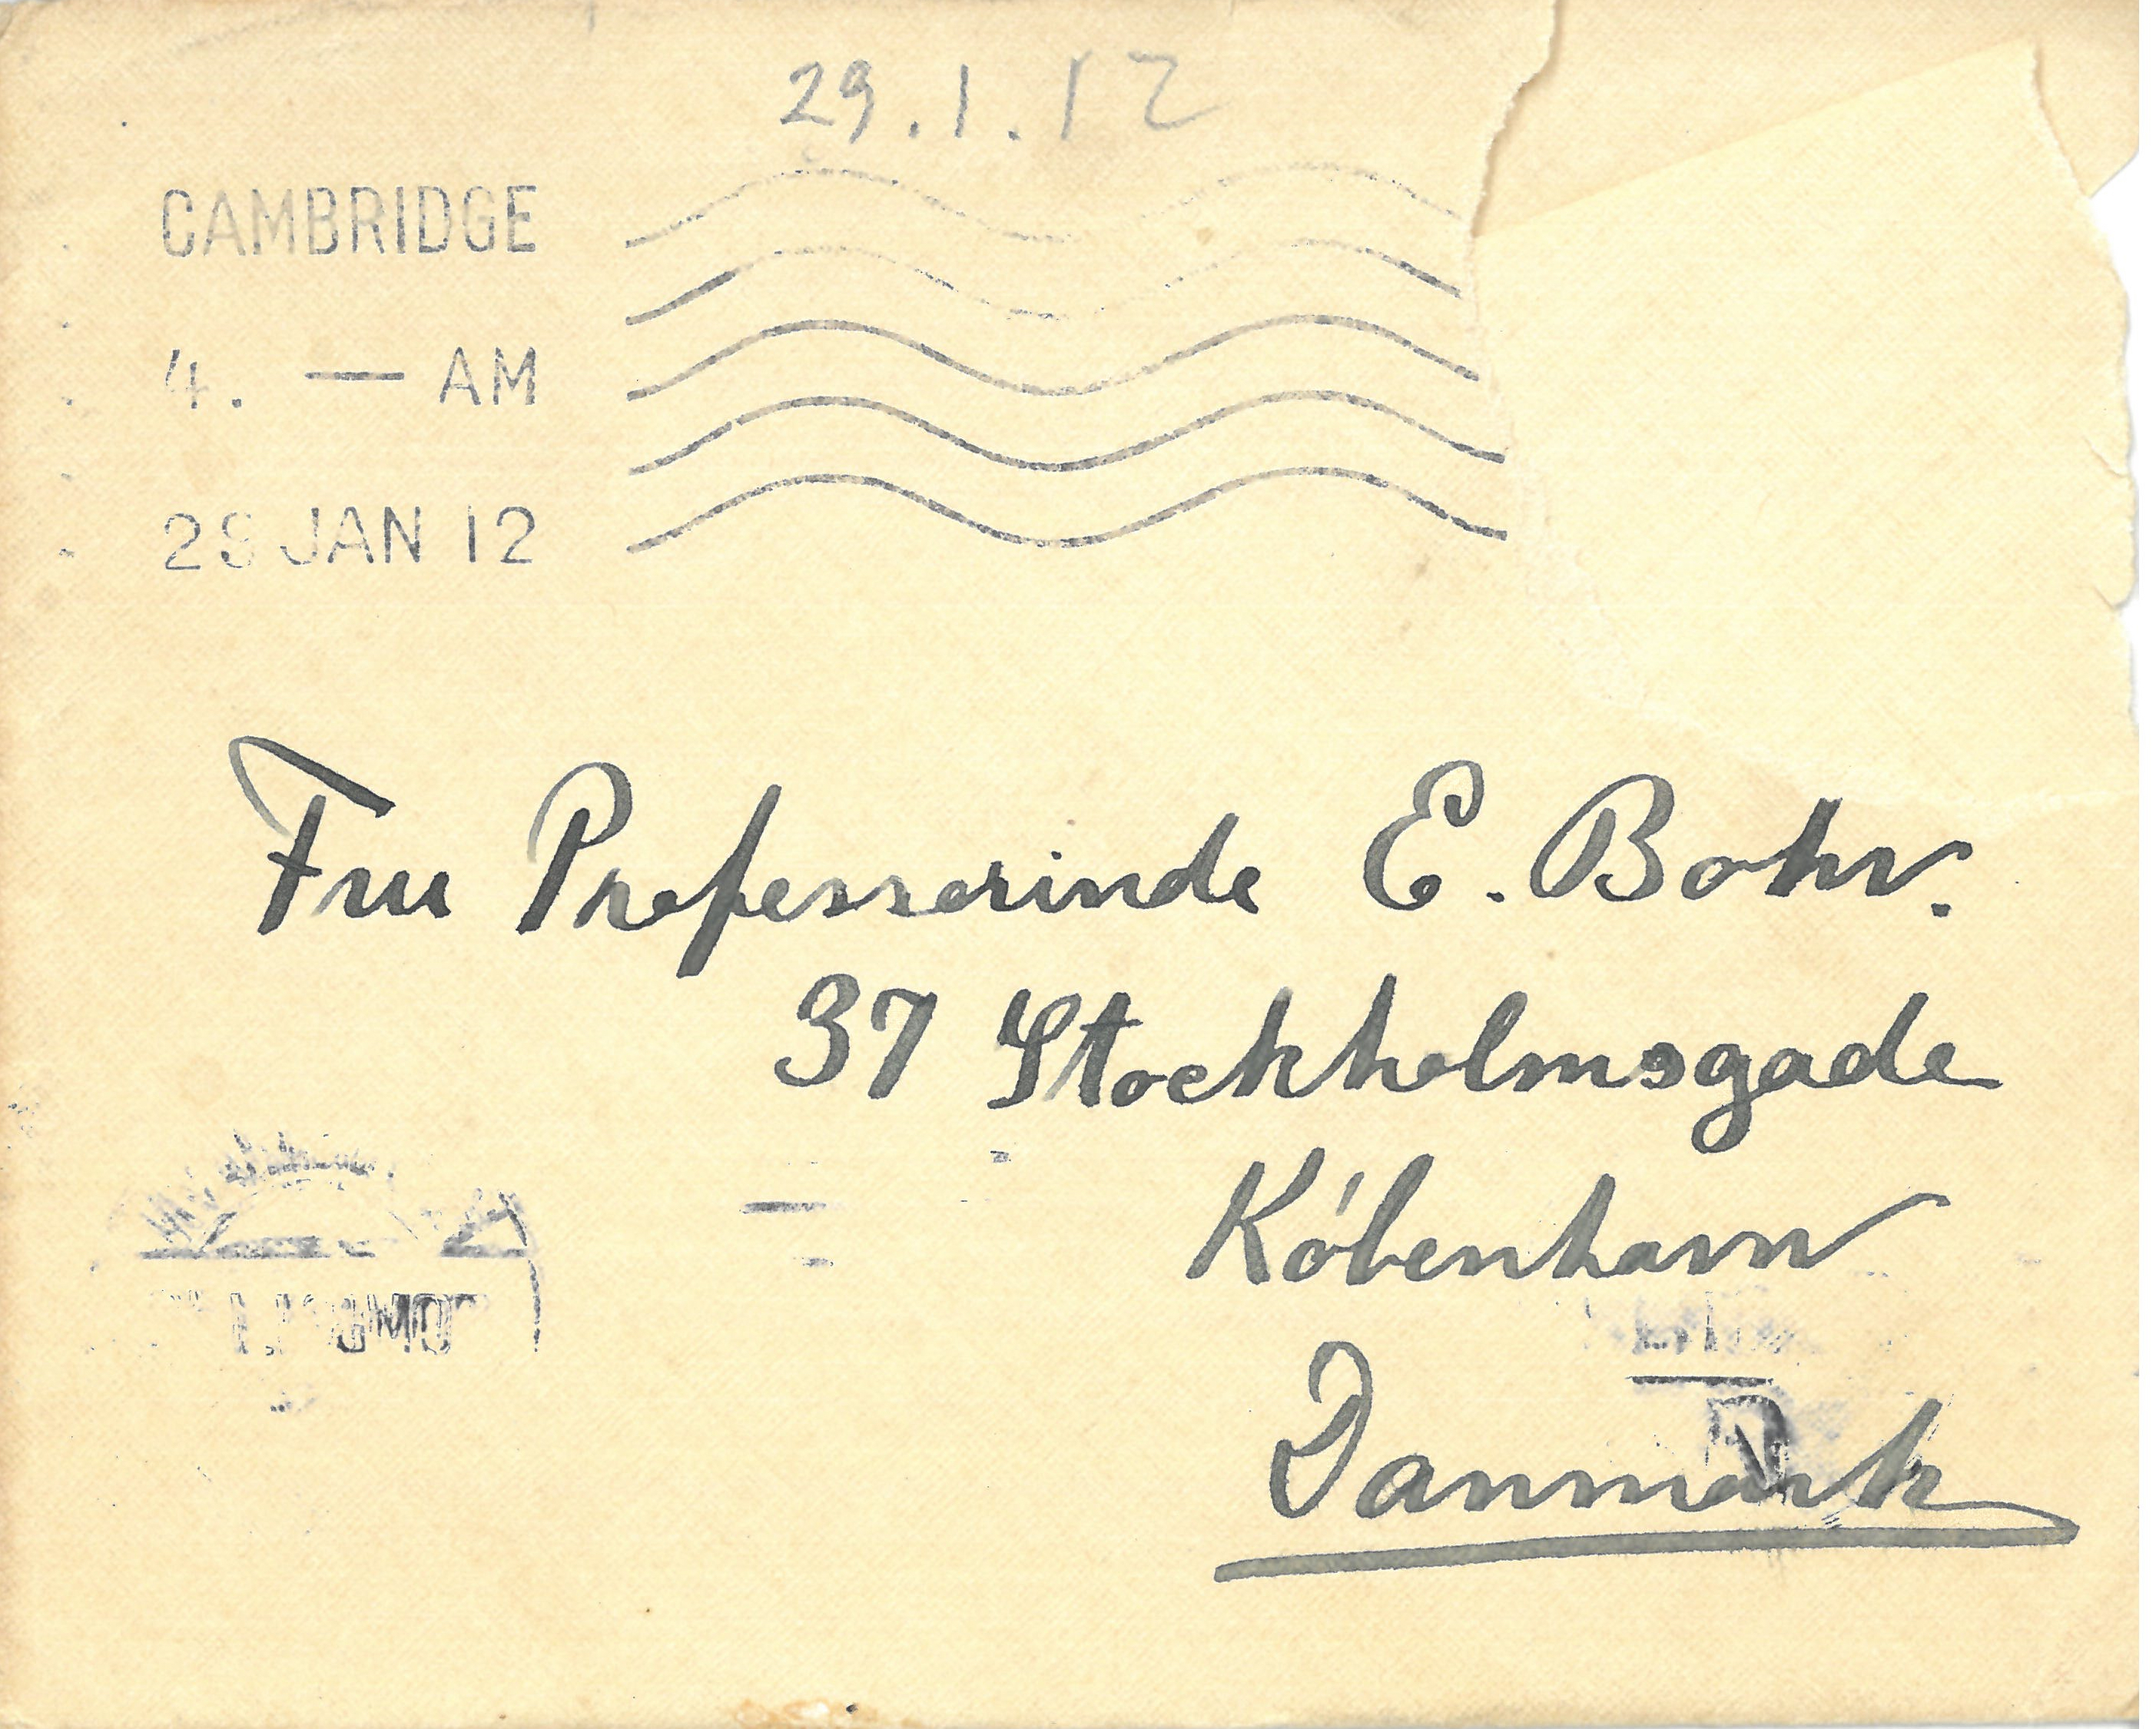 29.1.12
CAMBRIDGE
4. — AM
29 JAN 12
Fru Professorinde E. Bohr.
37 Stockholmsgade
København
Danmark